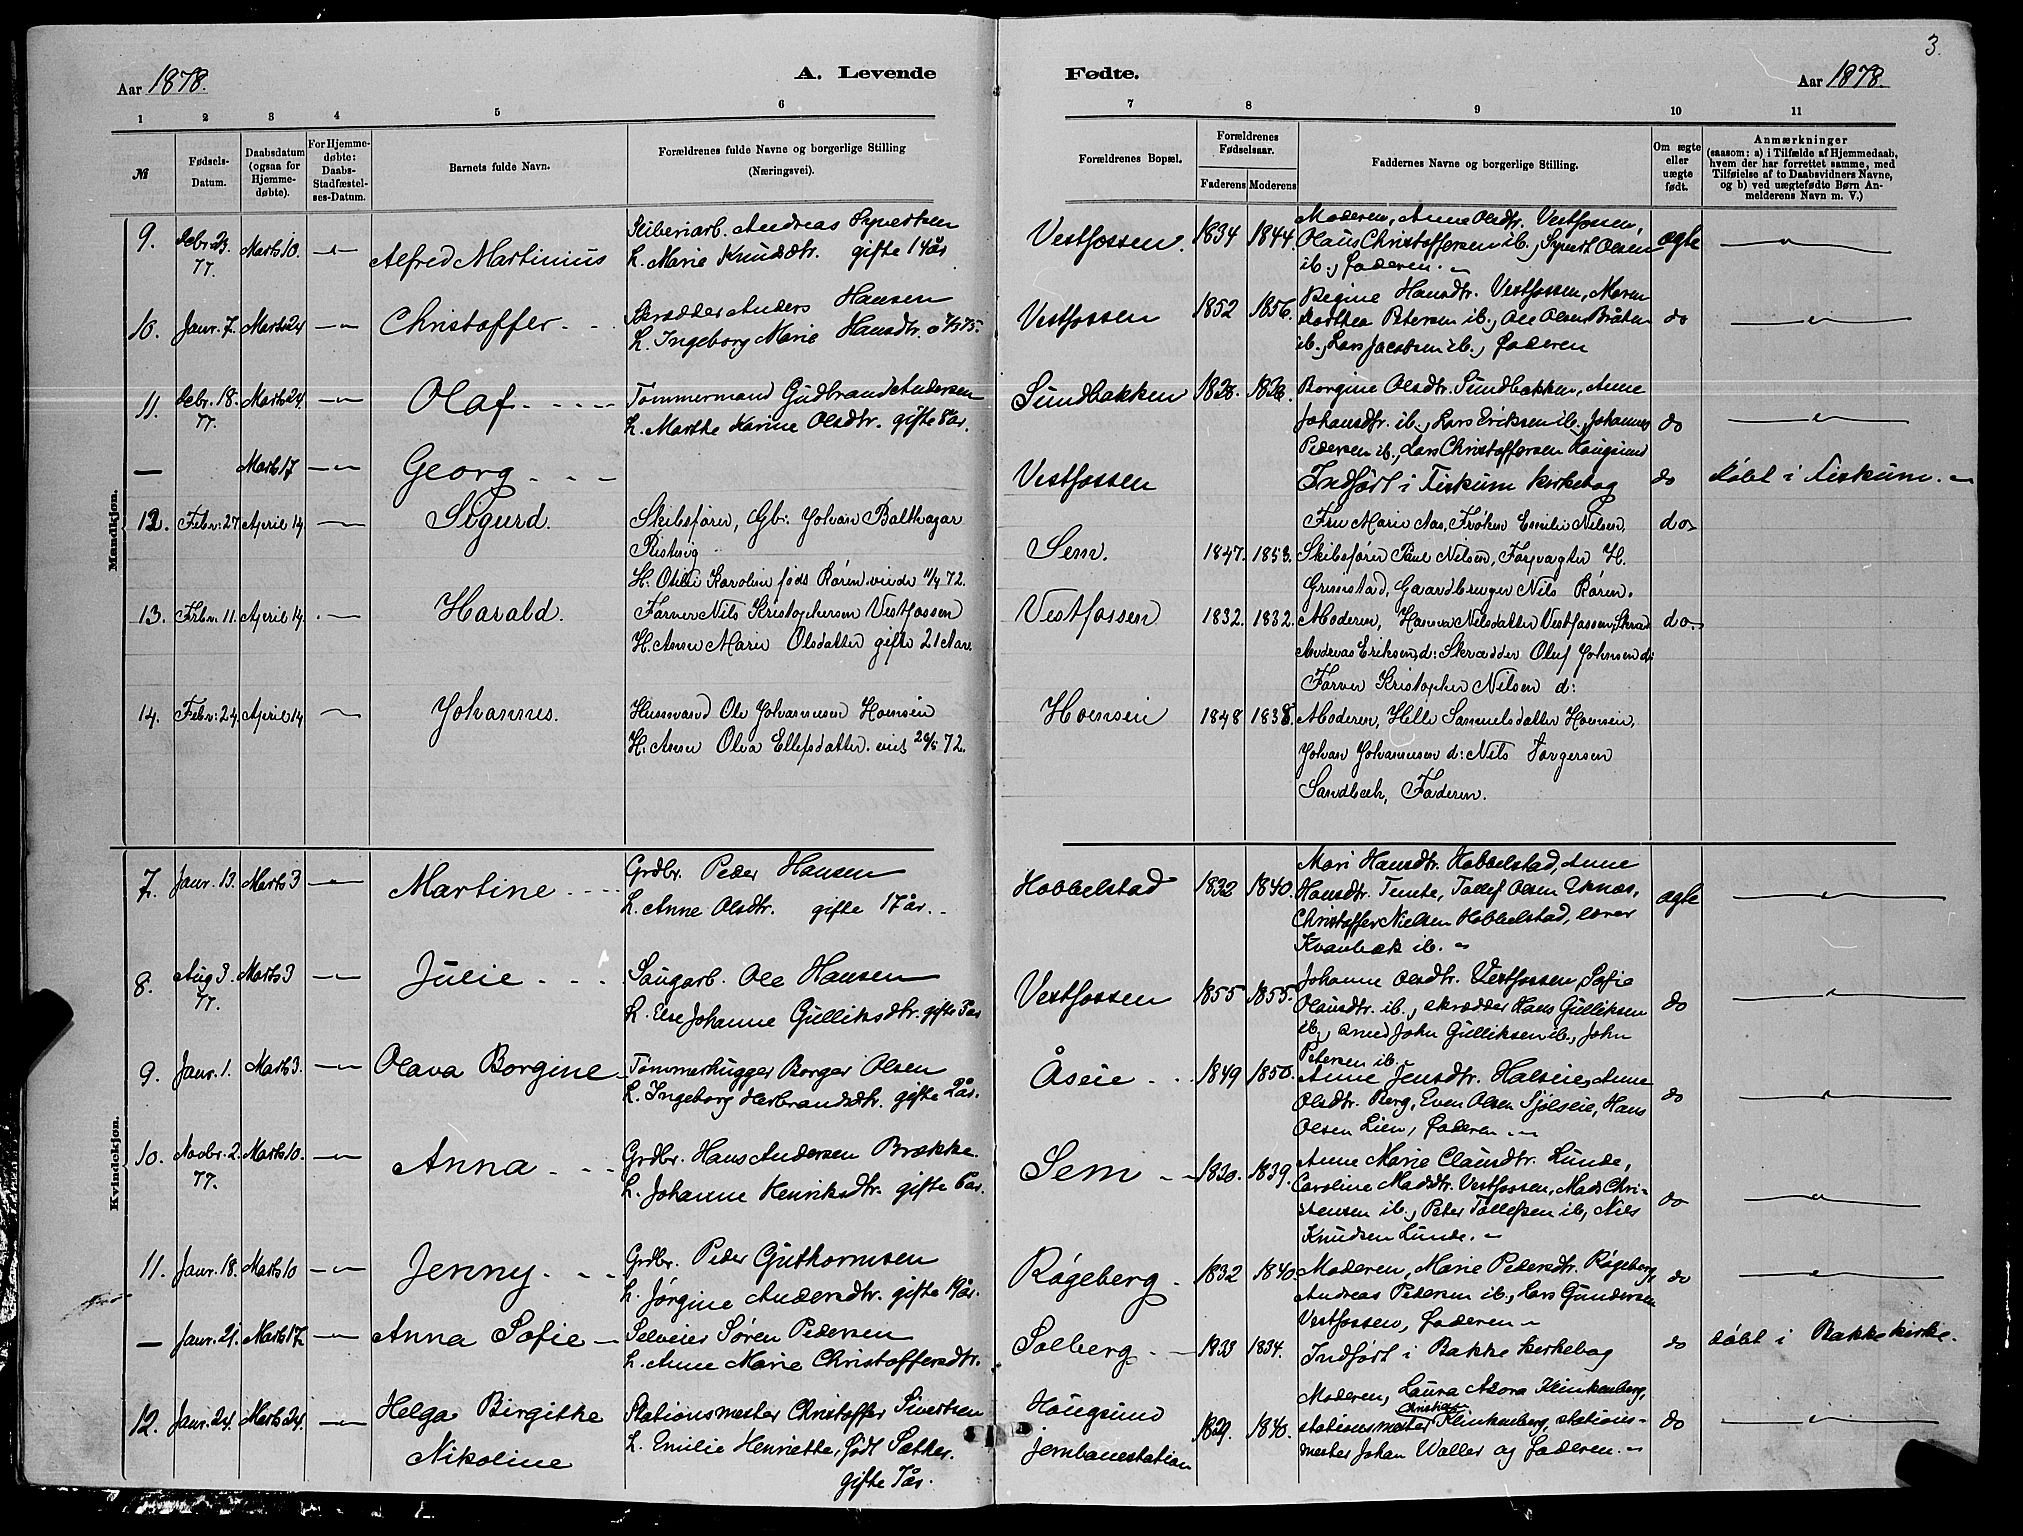 3.
Aar 1878.
A. Levende Fødte.
Aar 1878.
1 2 3 4 5 6 7 8 9 10 11
№
Fødsels-Datum.
Daabsdatum (ogsaa for Hjemme-døbte).
For Hjemme-døbte: Daabs-Stadfæstel-ses-Datum.
Barnets fulde Navn.
Forældrenes fulde Navne og borgerlige Stilling
(Næringsvei).
Forældrenes Bopæl.
Forældrenes Fødselsaar.
Faderens Moderens
Faddernes Navne og borgerlige Stilling.
Om ægte eller uægte født.
Anmærkninger
(saasom: a) i Tilfælde af Hjemmedaab,
hvem der har forrettet samme, med
Tilføielse af to Daabsvidners Navne,
og b) ved uægtefødte Børn An-
melderens Navn m. V.)
Mandkjøn.
9. Debr. 23. 77. Marts 10. Alfred Martinius
Andreas Syvertsen
h. Marie Knudsdtr. gifte 14 år
Vestfossen. 1834 1844
Moderen, Anne Olsdtr. Vestfossen,
Olaus Christoffersen ib., Syvert Olsen
ib., faderen.
ægte
10. Janr. 7. Marts 24 Christoffer
Skrædder Anders Hansen
h. Ingeborg Marie Hansdtr.
Vestfossen 1852 1856.
Regine Hansdtr. Vestfossen, Maren
Dorthea Petersen ib., Ole Olsen Bråten
ib., Lars Jacobsen ib., faderen
do
11. Debr. 18. 77. Marts 24. Olaf
Tømmermand Gudbrand Andersen
h. Marthe Karine Olsdtr. gifte 8 år.
Sundbakken 1828. 1828.
Borgine Olsdtr. Sundbakken, Anne
Johansdtr. ib., Lars Eriksen ib., Johannes
Pedersen ib., Lars Christoffersen Hougsund
do
— Marts 17 Georg
Vestfossen
Indført i Fiskum kirkebog
do
døbt i Fiskum.
12. Febr: 27 April 14 Sigurd.
Skibsfører, Gb: Johan Balthazar
H. Otilie Karoline føds Røren viede 11/4 72.
Sem. 1847. 1853.
Fru Marie Aas, Frøken Emilie Nilsen,
Skibsfører Paul Nilsen, Forvagter H.
Grimstad, Gaardbruger Nils Røren.
do
13. Febr. 11. April 14. Harald.
Farver Nils Kristophersen Vestfossen
H. Anne Marie Olsdatter gifte 21 Aar.
Vestfossen 1832. 1832.
Moderen, Hanna Nilsdatter Vestfossen, Skræd
Andreas Eriksen d: Skrædder Oluf Johnsen d:
Farver Kristopher Nilsen d:
do
14. Febr: 24 April 14 Johannes.
Husmand Ole Johannesen Hoenseie
H. Anne Olea Ellefsdatter. viet 26/5 72.
Hoenseie 1848 1838.
Moderen, Helle Samuelsdatter Hoenseie,
Johan Johannesen d: Nils Torgersen
Sandbæk, Faderen.
Kvindekjøn.
7. Janr. 13. Marts 3 Martine
Grdbr. Peder Hansen
h. Anne Olsdtr. gifte 17 år.
Hobbelstad 1832 1840.
Mari Hansdtr. Hobbelstad, Anne
Hansdtr. Temte, Tollef Olsen Eknæs,
Christoffer Nielsen Hobbelstad, lærer
Kvanbæk ib.
ægte
8. Aug 3. 77. Marts 3 Julie
Saugarb. Ole Hansen
h. Else Johanne Gulliksdtr. gifte
Vestfossen 1855 1855.
Johanne Olsdtr. Vestfossen, Sofie
Olausdtr. ib., skrædder Hans Gulliksen
ib., smed John Gulliksen ib., John
Petersen ib.
do
9. Janr. 1. Marts 3. Olava Borgine
Tømmerhugger Borger Olsen
h. Ingeborg Herbrandsdtr. gifte 2 år.
Åseie 1849 1850.
Anne Jensdtr. Halseie, Anne
Olsdtr. Berg, Even Olsen Sjølseie, Hans
Olsen Lien, faderen
do
10. Novbr. 2. 77. Marts 10. Anna
Grdbr. Hans Andersen Brække
h. Johanne Henriksdtr. gifte 6 år.
Sem 1830. 1839.
Anne Marie Clausdtr. Lunde,
Caroline Madsdtr. Vestfossen, Mads Chri-
stensen ib., Peter Tollefsen ib, Niels
Knudsen Lunde.
do
11. Janr. 18. Marts 10 Jenny
Grdbr. Peder Guthormsen
h. Jørgine Andersdtr. gifte
Røgeberg 1832 1840
Moderen, Marie Pedersdtr. Røgeberg,
Andreas Petersen ib., Lars Gundersen
Vestfossen, faderen
do
— Janr. 21. Marts 17. Anna Sofie
Selveier Søren Pedersen
h. Anne Marie Christoffersdtr.
Solberg 1833 1834.
Indført i Bakke kirkebog
do
døbt i Bakke kirke.
12. Janr. 24. Marts 24. Helga Birgitke
Nikoline
Stationsmester Christoffer Sivertsen
h. Emilie Henriette, født Sætker.
gifte 7 år.
Hougsund
jernbanestation
1829. 1840.
Moderen, Laura Alora Klinkenberg,
Christian
stationsmester Klinkenberg, stations-
mester Johan Waller og faderen.
do